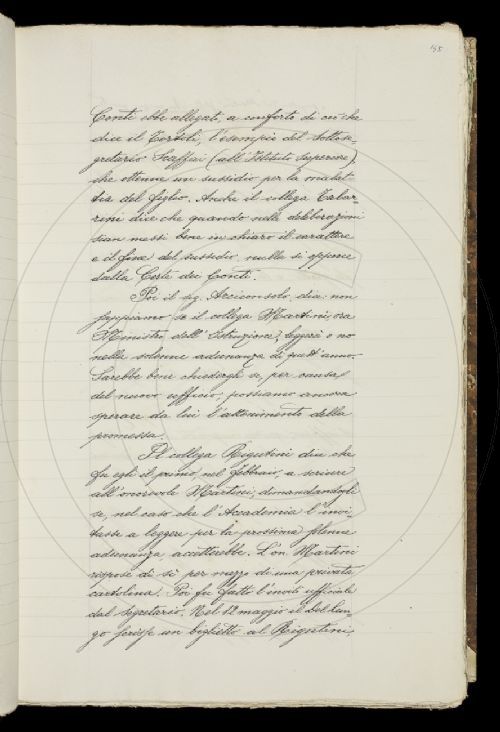 155
Conti ebbe allegato, a conforto di ciò che
dice il Tortoli, l'esempio del sottose-
gretario Scaffai (all'Istituto Superiore),
che ottenne un sussidio per la malat-
tia del figlio. Anche il collega Tabar-
rini dice che quando nelle deliberazioni
sian messi bene in chiaro il carattere
e il fine del sussidio, nulla si oppone
dalla Corte dei Conti.
Poi il sig. Arciconsolo dice: non
sappiamo se il collega Martini, ora
Ministro dell'Istruzione, leggerà o no
nella solenne adunanza di quest'anno.
Sarebbe bene chiedergli se, per causa
del nuovo ufficio, possiamo ancora
sperare da lui l'attenimento della
promessa.
Il collega Rigutini dice che
fu egli il primo, nel febbraio, a scrivere
all'onorevole Martini, dimandandogli
se, nel caso che l'Accademia l'invi-
tasse a leggere per la prossima solenne
adunanza, accetterebbe. L'on. Martini
rispose di sì per mezzo di una privata
cartolina. Poi fu fatto l'invito ufficiale
dal Segretario. Nel 12 maggio il Del Lun-
go scrisse un biglietto al Rigutini,